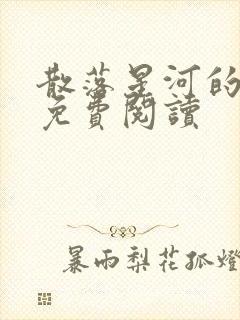 散落星河的
免費閱讀
暴雨梨花孤燈